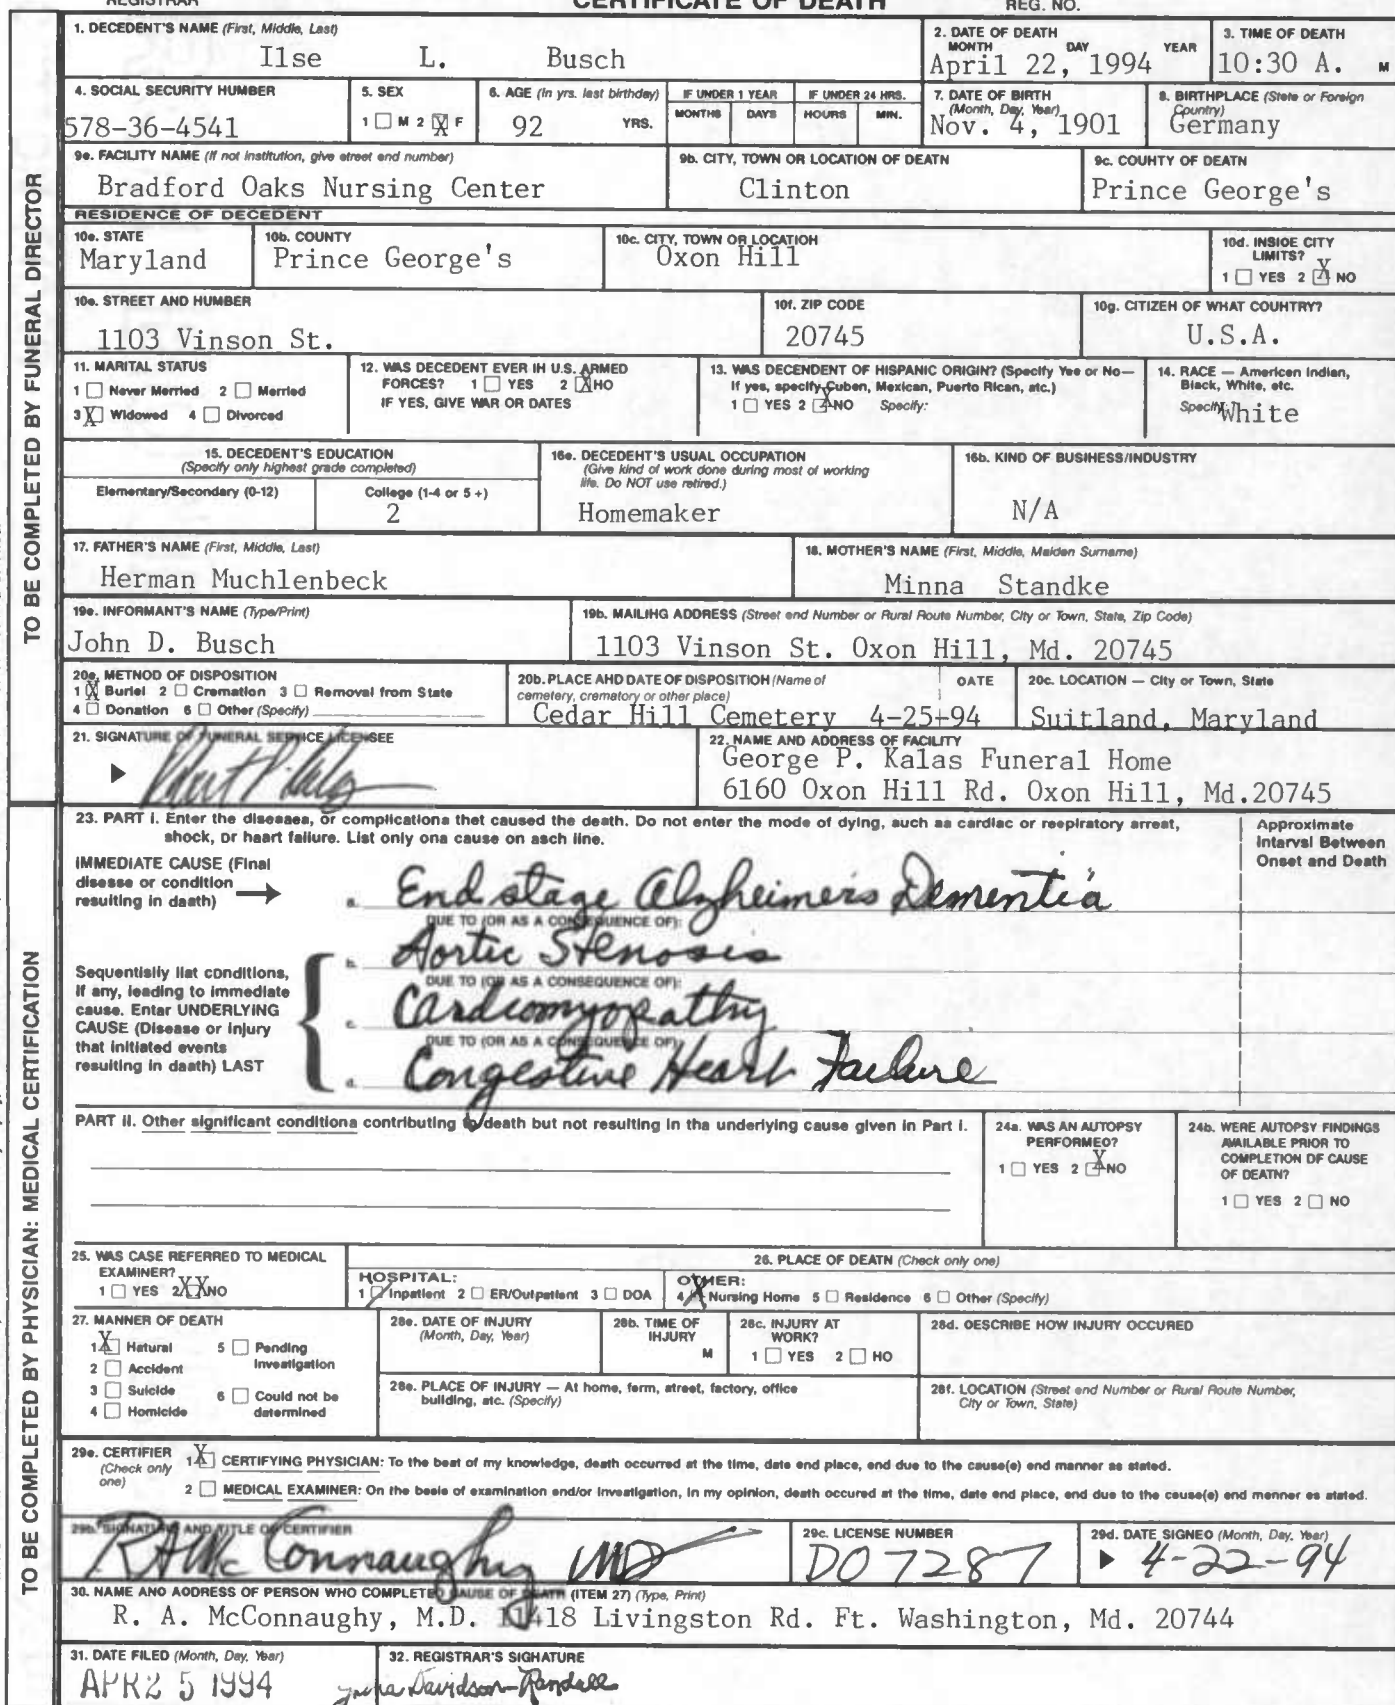 REGISTRAR CERTIFICATE OF DEATH REG. NO.
TO BE COMPLETED BY FUNERAL DIRECTOR
1. DECEDENT'S NAME (First, Middle, Last)
Ilse L. Busch
2. DATE OF DEATH
MONTH DAY YEAR
April 22, 1994
3. TIME OF DEATH
10:30 A. M
4. SOCIAL SECURITY HUMBER
578-36-4541
5. SEX
1 ☐ M 2 ☒ F
6. AGE (In yrs. last birthday)
92 YRS.
IF UNDER 1 YEAR
MONTHS DAYS
IF UNDER 24 HRS.
HOURS MIN.
7. DATE OF BIRTH
(Month, Day, Year)
Nov. 4, 1901
8. BIRTHPLACE (State or Foreign
Country)
Germany
9e. FACILITY NAME (If not institution, give street end number)
Bradford Oaks Nursing Center
9b. CITY, TOWN OR LOCATION OF DEATH
Clinton
9c. COUHTY OF DEATH
Prince George's
RESIDENCE OF DECEDENT
10e. STATE
Maryland
10b. COUNTY
Prince George's
10c. CITY, TOWN OR LOCATION
Oxon Hill
10d. INSIOE CITY
LIMITS?
1 ☐ YES 2 ☒ NO
10e. STREET AND HUMBER
1103 Vinson St.
10f. ZIP CODE
20745
10g. CITIZEH OF WHAT COUHTRY?
U.S.A.
11. MARITAL STATUS
1 ☐ Never Merried 2 ☐ Merried
3 ☒ Widowed 4 ☐ Divorced
12. WAS DECEDENT EVER IH U.S. ARMED
FORCES? 1 ☐ YES 2 ☒ HO
IF YES, GIVE WAR OR DATES
13. WAS DECENDENT OF HISPANIC ORIGIN? (Specify Yee or No—
If yes, specify Cuben, Mexican, Puerto Rican, atc.)
1 ☐ YES 2 ☒ NO Specify:
14. RACE — Americen Indien,
Bleck, White, etc.
Specify White
15. DECEDENT'S EDUCATION
(Specify only highest grade completed)
Elementary/Secondary (0-12)
College (1-4 or 5 +)
2
16e. DECEDEHT'S USUAL OCCUPATION
(Give kind of work done during most of working
life. Do NOT use retired.)
Homemaker
16b. KIND OF BUSIHESS/INDUSTRY
N/A
17. FATHER'S NAME (First, Middle, Last)
Herman Muchlenbeck
18. MOTHER'S NAME (First, Middle, Maiden Surname)
Minna Standke
19e. INFORMANT'S NAME (Type/Print)
John D. Busch
19b. MAILIHG ADDRESS (Street end Number or Rural Route Number, City or Town, State, Zip Code)
1103 Vinson St. Oxon Hill, Md. 20745
20e. METNOD OF DISPOSITION
1 ☒ Buriel 2 ☐ Cremation 3 ☐ Removal from State
4 ☐ Donation 6 ☐ Other (Specify)
20b. PLACE AHD DATE OF DISPOSITION (Name of
cemetery, crematory or other place)
OATE
Cedar Hill Cemetery 4-25-94
20c. LOCATION — City or Town, State
Suitland, Maryland
21. SIGNATURE OF FUNERAL SERVICE LICENSEE
22. NAME AND ADDRESS OF FACILITY
George P. Kalas Funeral Home
6160 Oxon Hill Rd. Oxon Hill, Md.20745
TO BE COMPLETED BY PHYSICIAN: MEDICAL CERTIFICATION
23. PART I. Enter the diseases, or complications thet caused the death. Do not enter the mode of dying, such as cardiac or reepiratory arreat,
shock, or haart failure. List only ona cause on asch line.
Approximate
Intervsl Between
Onset and Death
IMMEDIATE CAUSE (Final
disease or condition
resulting in daath)
a. End stage Alzheimers Dementia
DUE TO (OR AS A CONSEQUENCE OF):
Sequentislly liat conditions,
if any, leading to immediate
cause. Enter UNDERLYING
CAUSE (Disease or Injury
that initiated events
resulting in daath) LAST
b. Aortic Stenosis
DUE TO (OR AS A CONSEQUENCE OF):
c. Cardiomyopathy
DUE TO (OR AS A CONSEQUENCE OF):
d. Congestive Heart Failure
PART II. Other significant conditiona contributing to death but not resulting in tha underlying cause given in Part I.
24a. WAS AN AUTOPSY
PERFORMEO?
1 ☐ YES 2 ☒ NO
24b. WERE AUTOPSY FINDINGS
AVAILABLE PRIOR TO
COMPLETION OF CAUSE
OF DEATN?
1 ☐ YES 2 ☐ NO
25. WAS CASE REFERRED TO MEDICAL
EXAMINER?
1 ☐ YES 2 XX NO
26. PLACE OF DEATH (Check only one)
HOSPITAL:
1 ☐ Inpatient 2 ☐ ER/Outpatient 3 ☐ DOA
OTHER:
4 ☒ Nursing Home 5 ☐ Residence 6 ☐ Other (Specify)
27. MANNER OF DEATH
1 ☒ Hatural 5 ☐ Pending
Investigation
2 ☐ Accident
3 ☐ Suicide 6 ☐ Could not be
determined
4 ☐ Homicide
28e. DATE OF INJURY
(Month, Day, Year)
28b. TIME OF
INJURY
M
28c. INJURY AT
WORK?
1 ☐ YES 2 ☐ HO
28d. OESCRIBE HOW INJURY OCCURED
28e. PLACE OF INJURY — At home, ferm, street, factory, office
building, atc. (Specify)
28f. LOCATION (Street end Number or Rural Route Number,
City or Town, State)
29e. CERTIFIER
(Check only
one)
1 ☒ CERTIFYING PHYSICIAN: To the beat of my knowledge, death occurred at the time, date end place, end due to the cause(e) end manner as stated.
2 ☐ MEDICAL EXAMINER: On the beeie of examination end/or Investigation, in my opinion, death occured at the time, date end place, end due to the ceuse(e) end menner es stated.
29b. SIGNATURE AND TITLE OF CERTIFIER
RAMcConnaughy MD
29c. LICENSE NUMBER
D07287
29d. DATE SIGNEO (Month, Day, Year)
4-22-94
30. NAME ANO AODRESS OF PERSON WHO COMPLETED CAUSE OF DEATH (ITEM 27) (Type, Print)
R. A. McConnaughy, M.D. 11418 Livingston Rd. Ft. Washington, Md. 20744
31. DATE FILED (Month, Day, Year)
APR 25 1994
32. REGISTRAR'S SIGNATURE
Davidson-Randall